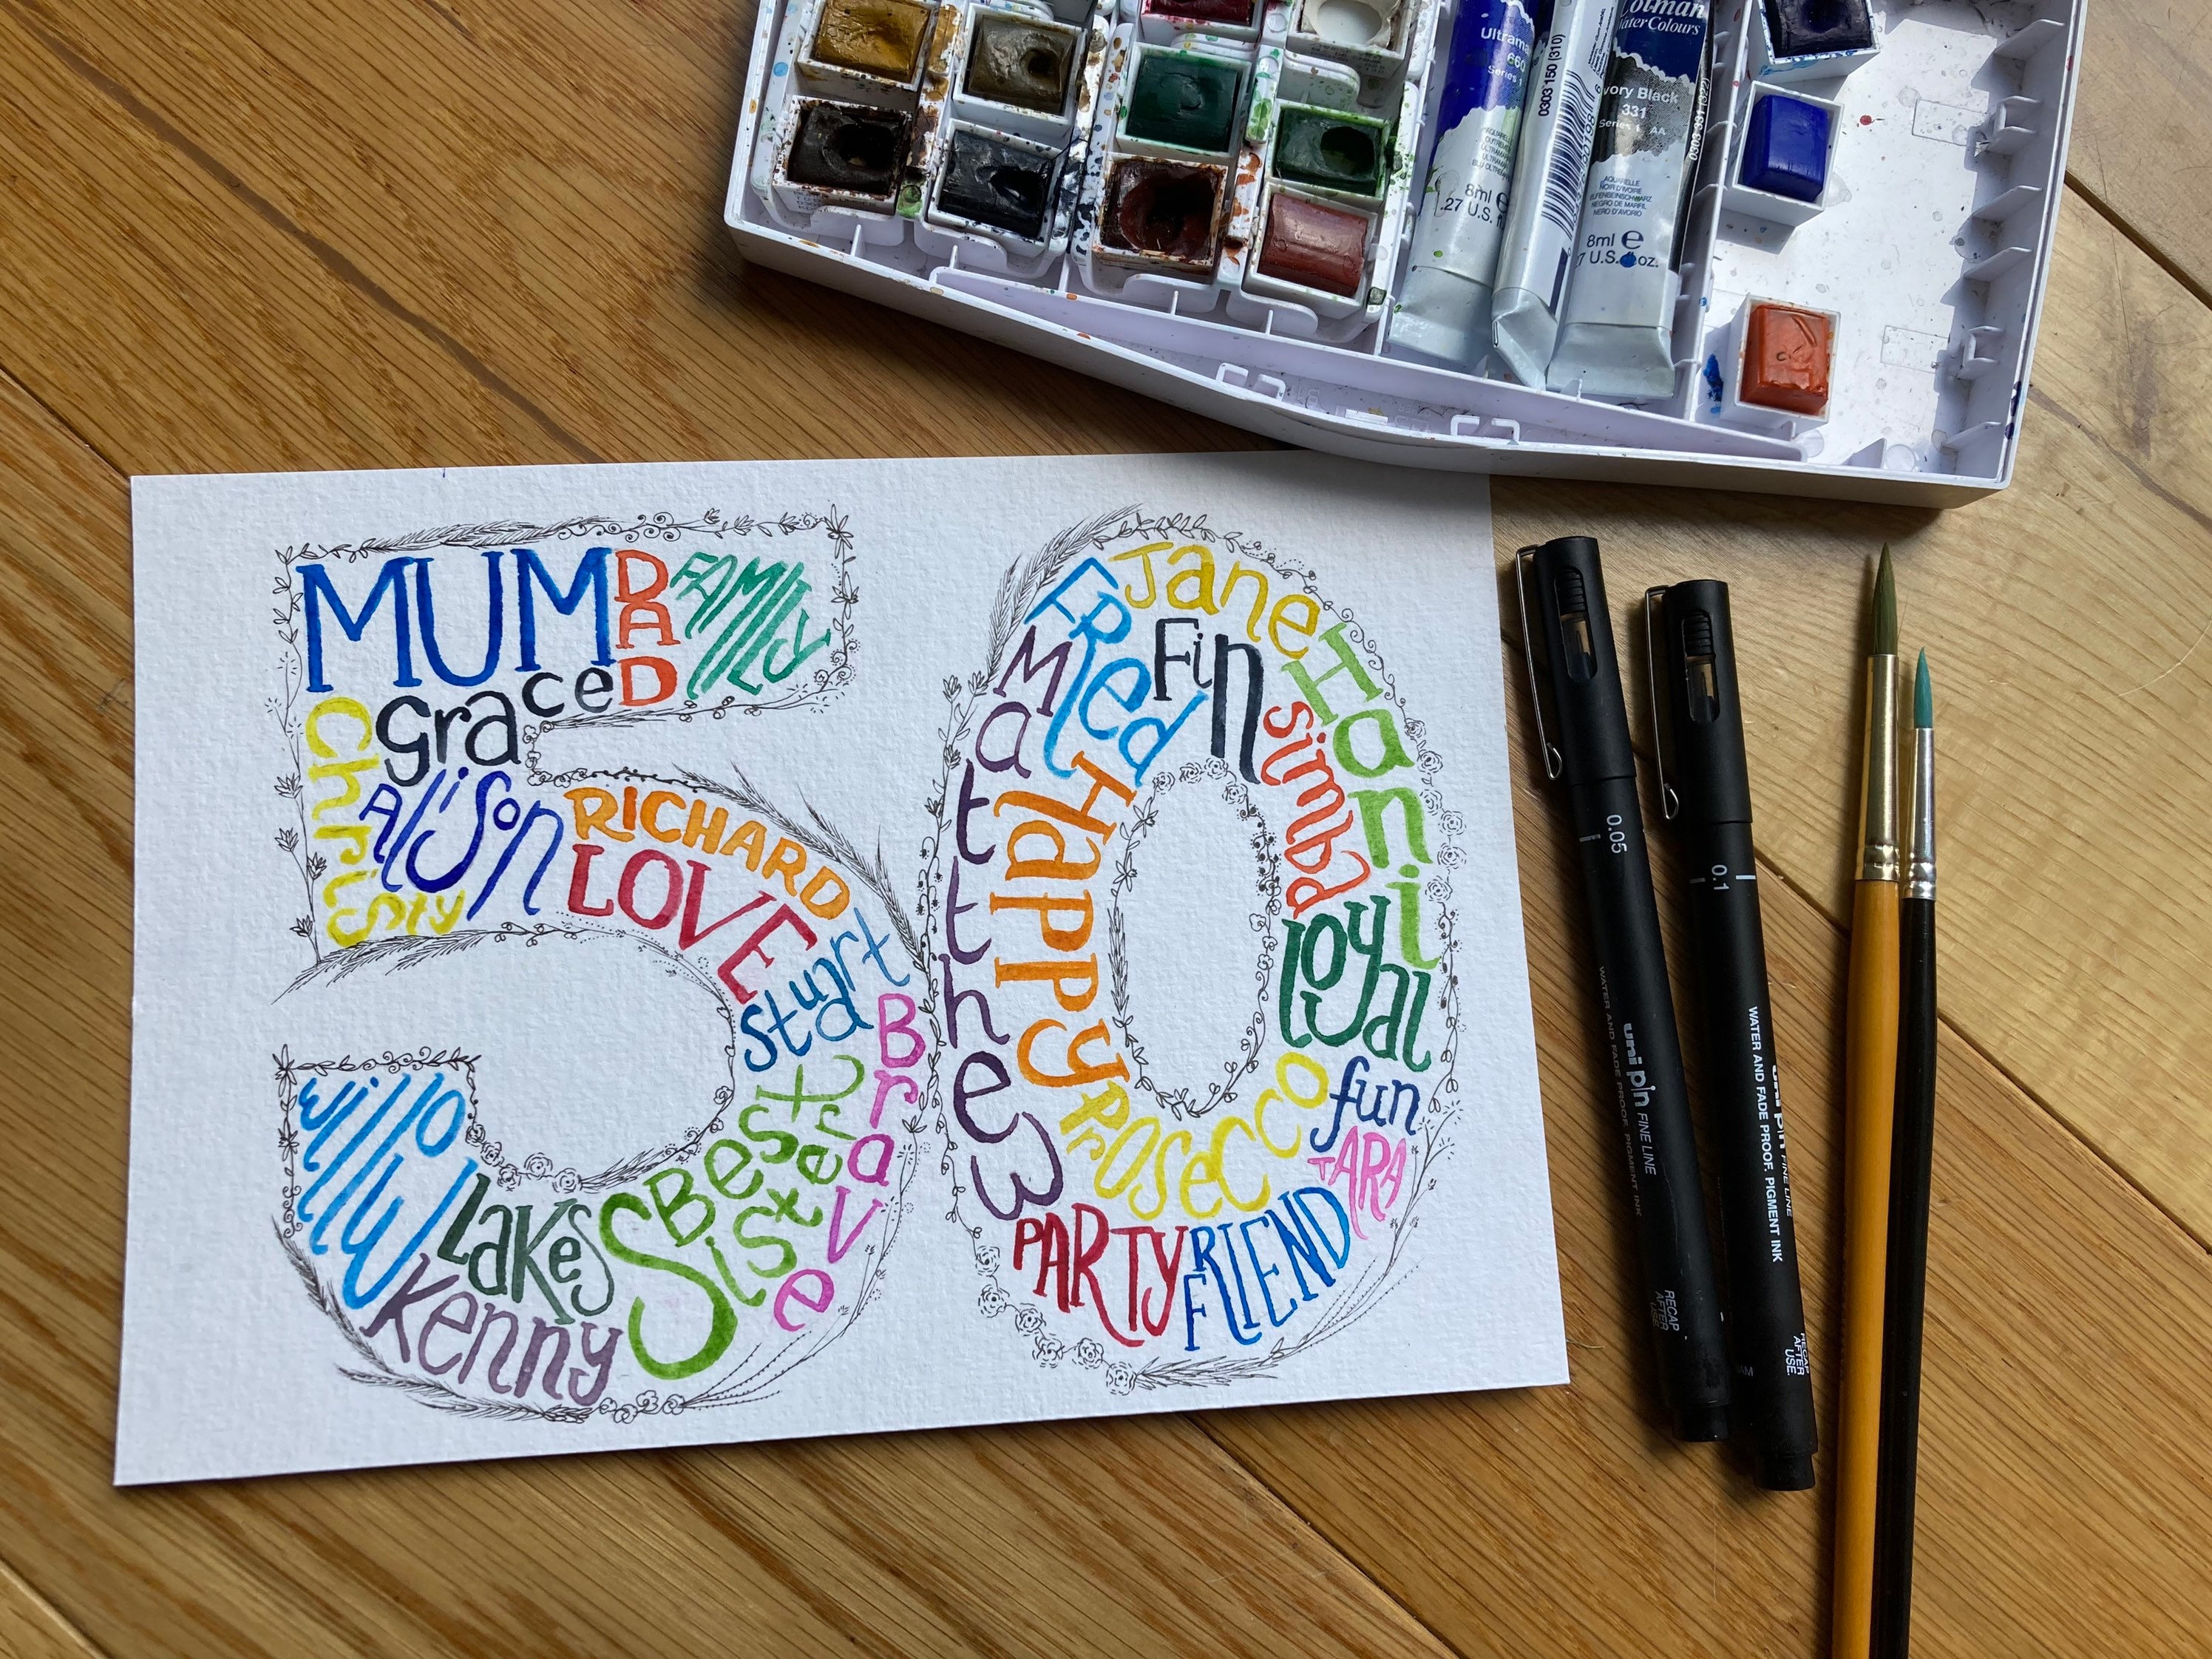 Colman
Water Colours
Ultrama
660
Series 1
0303 150 (310)
Ivory Black
331
Series 1 AA
AQUARELLE
NOIR D'IVOIRE
ELFENBEINSCHWARZ
NEGRO DE MARFIL
NERO D'AVORIO
0303 331 (322)
8ml e
.27 U.S. fl
8ml e
7 U.S. fl oz.
MUM
DAD
FAMILY
graced
Christy
Alison
RICHARD
LOVE
Stuart
Brave
Best
Sister
Willow
LAKES
Kenny
Jane
FRed
Fin
Matthew
Hani
simba
Happy
loyal
Prosecco
fun
TARA
PARTY
FRIEND
0.05
uni pin FINE LINE
WATER AND FADE PROOF, PIGMENT INK
RECAP AFTER USE
0.1
uni pin FINE LINE
WATER AND FADE PROOF, PIGMENT INK
RECAP AFTER USE